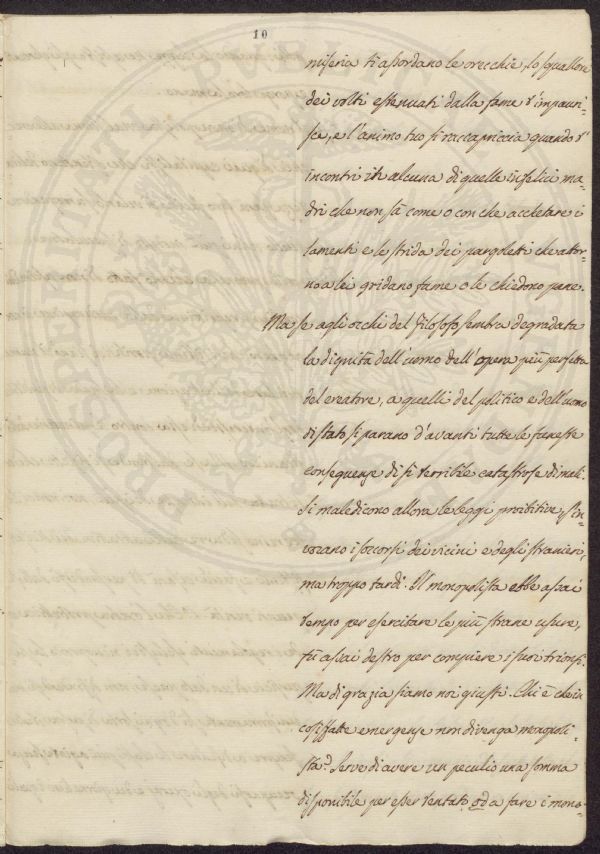 10
miseria ti assordano le orecchie, lo squallore
dei volti estenuati dalla fame t'impauri-
sce, e l'animo tuo si raccapriccia quando t'
incontri in alcuna di quelle infelici ma-
dri che non sà come o con che acchetare i
lamenti e le strida dei pargoletti che attor-
no a lei gridano fame o le chiedono pane.
Ma se agli occhi del Filosofo sembra degradata
la dignità dell'uomo dell'opera più perfetta
del creatore, a quelli del politico e dell'uomo
di stato si parano d'avanti tutte le funeste
conseguenze di sì terribile catastrofe di mali.
Si maledicono allora le leggi proibitive, s'in-
vocano i soccorsi dei vicini e degli stranieri,
ma troppo tardi. Il monopolista ebbe assai
tempo per esercitare le più strane usure,
fù assai destro per compiere i suoi trionfi.
Ma di grazia siamo noi giusti. Chi è che in
cosiffatte emergenze non divenga monopoli-
sta? Serve di avere un peculio una somma
disponibile per esser tentato od a fare i mono-